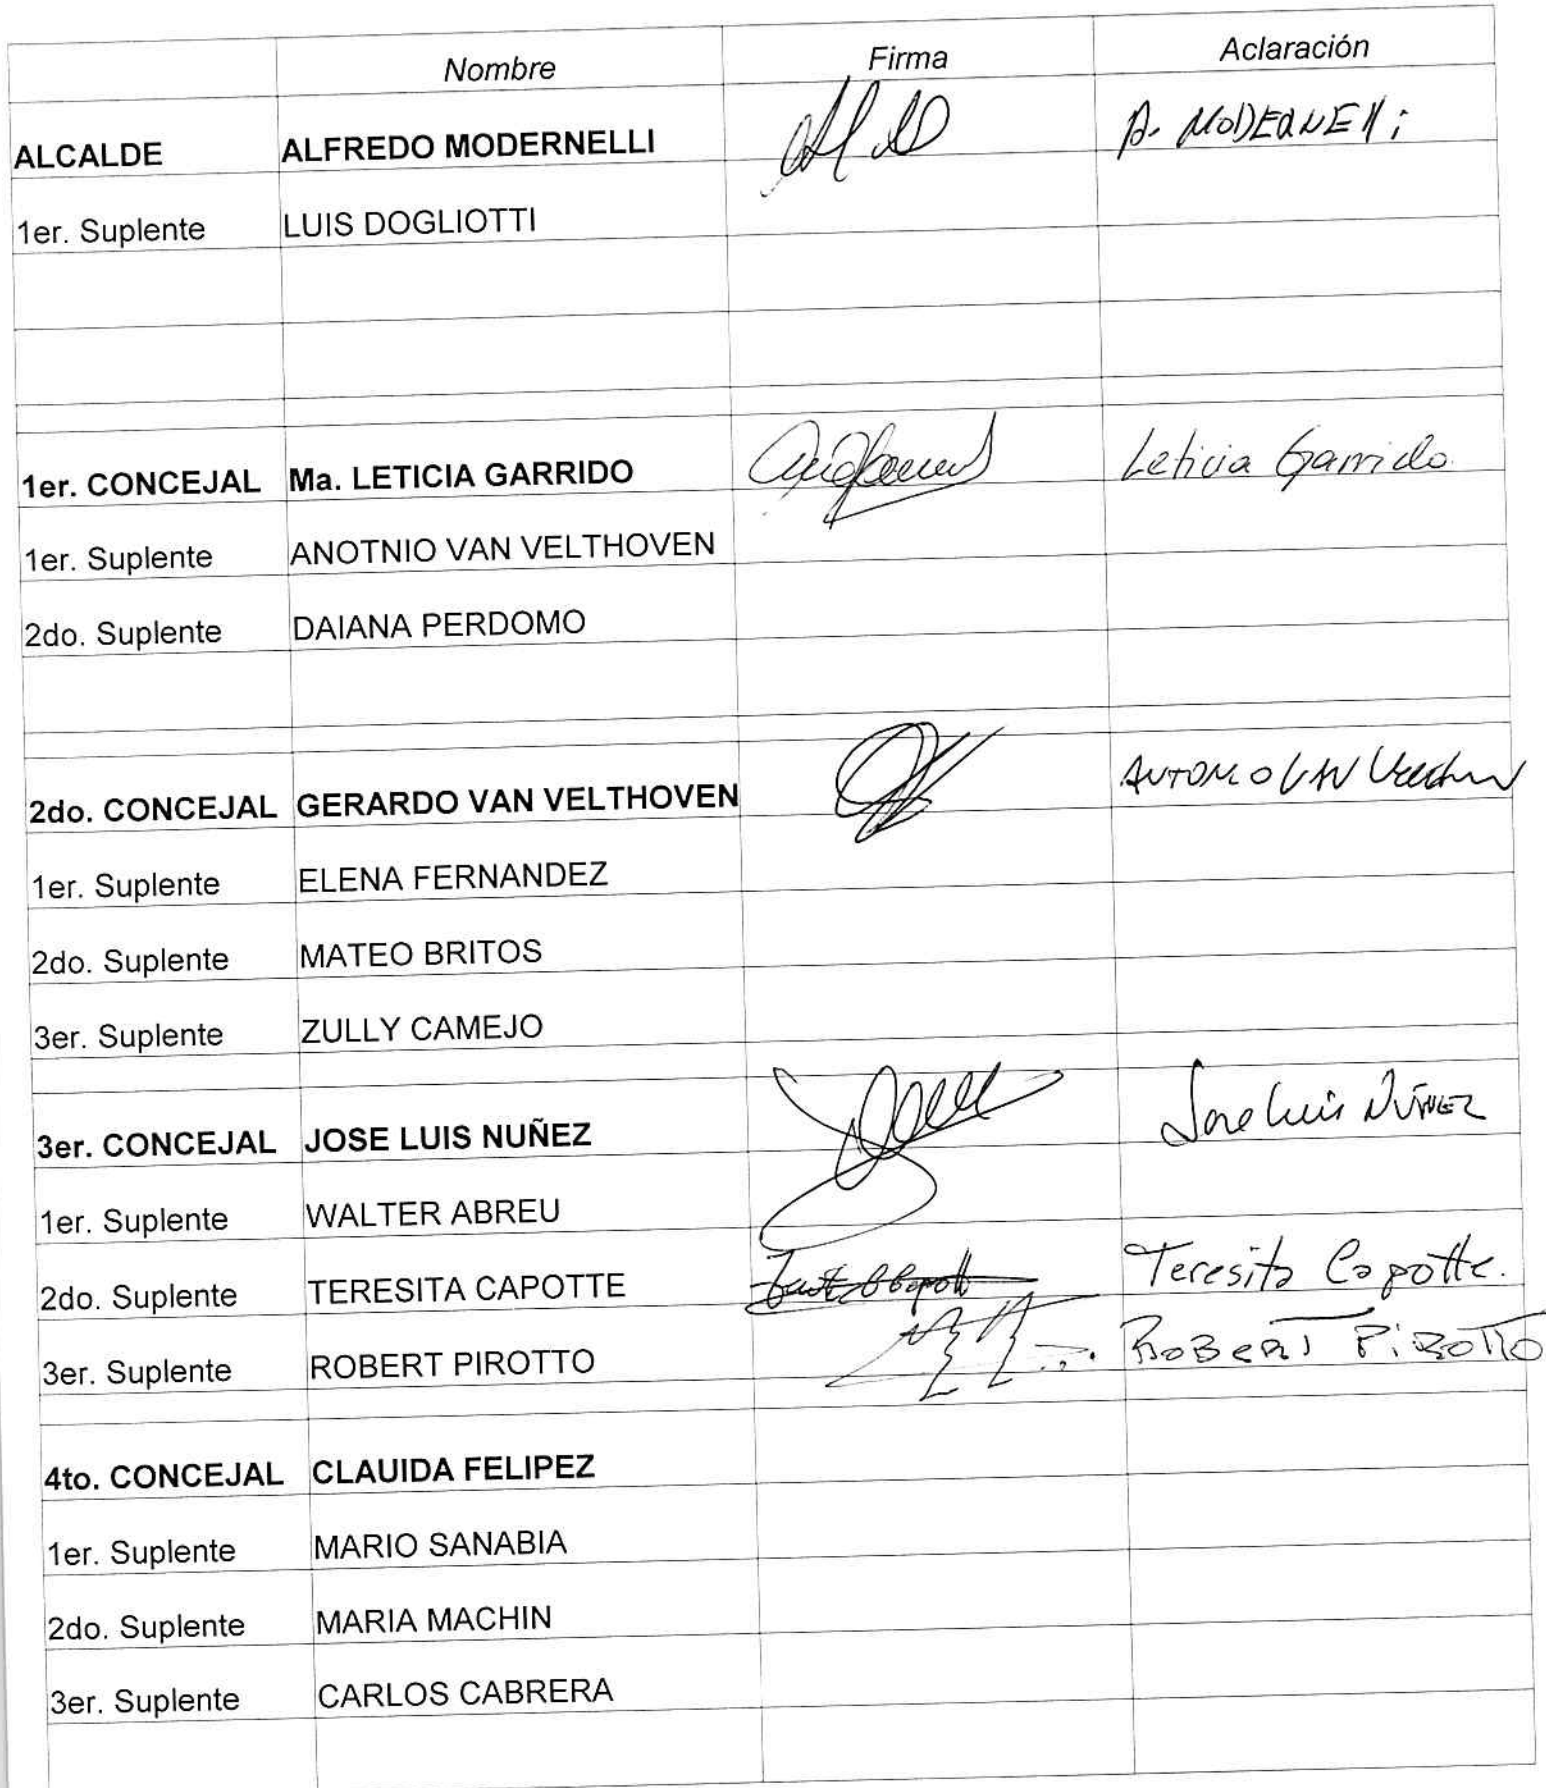 Nombre Firma Aclaración
ALCALDE ALFREDO MODERNELLI A. MODERNELLi
1er. Suplente LUIS DOGLIOTTI
1er. CONCEJAL Ma. LETICIA GARRIDO Leticia Garrido.
1er. Suplente ANOTNIO VAN VELTHOVEN
2do. Suplente DAIANA PERDOMO
2do. CONCEJAL GERARDO VAN VELTHOVEN ANTONIO VAN
1er. Suplente ELENA FERNANDEZ
2do. Suplente MATEO BRITOS
3er. Suplente ZULLY CAMEJO
3er. CONCEJAL JOSE LUIS NUÑEZ Jose Luis NUÑEZ
1er. Suplente WALTER ABREU
2do. Suplente TERESITA CAPOTTE Teresita Capotte.
3er. Suplente ROBERT PIROTTO ROBERT PiROTTO
4to. CONCEJAL CLAUIDA FELIPEZ
1er. Suplente MARIO SANABIA
2do. Suplente MARIA MACHIN
3er. Suplente CARLOS CABRERA